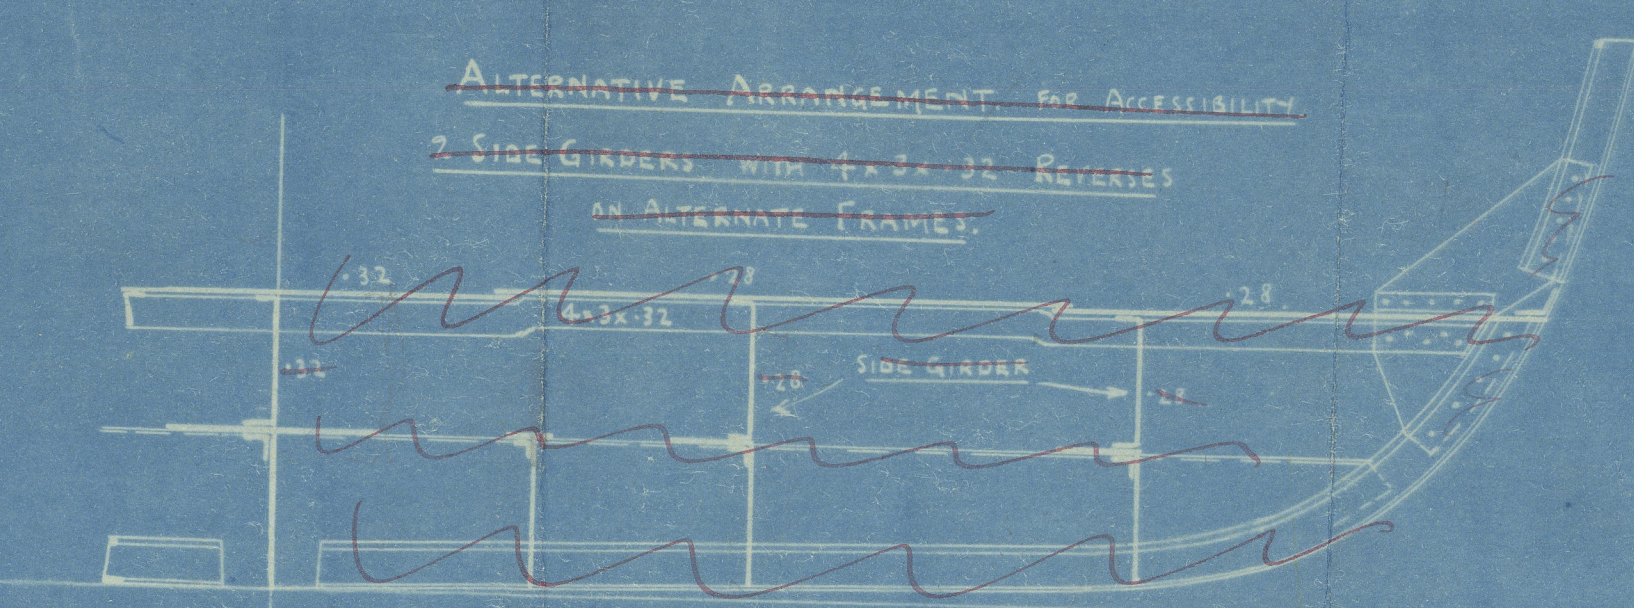 ALTERNATIVE ARRANGEMENT FOR ACCESSIBILITY.
2 SIDE GIRDERS WITH 4 x 3 x .32 REVERSES
ON ALTERNATE FRAMES.
.32 .28 .28
4x3x.32
SIDE GIRDER
.32 .28 .28